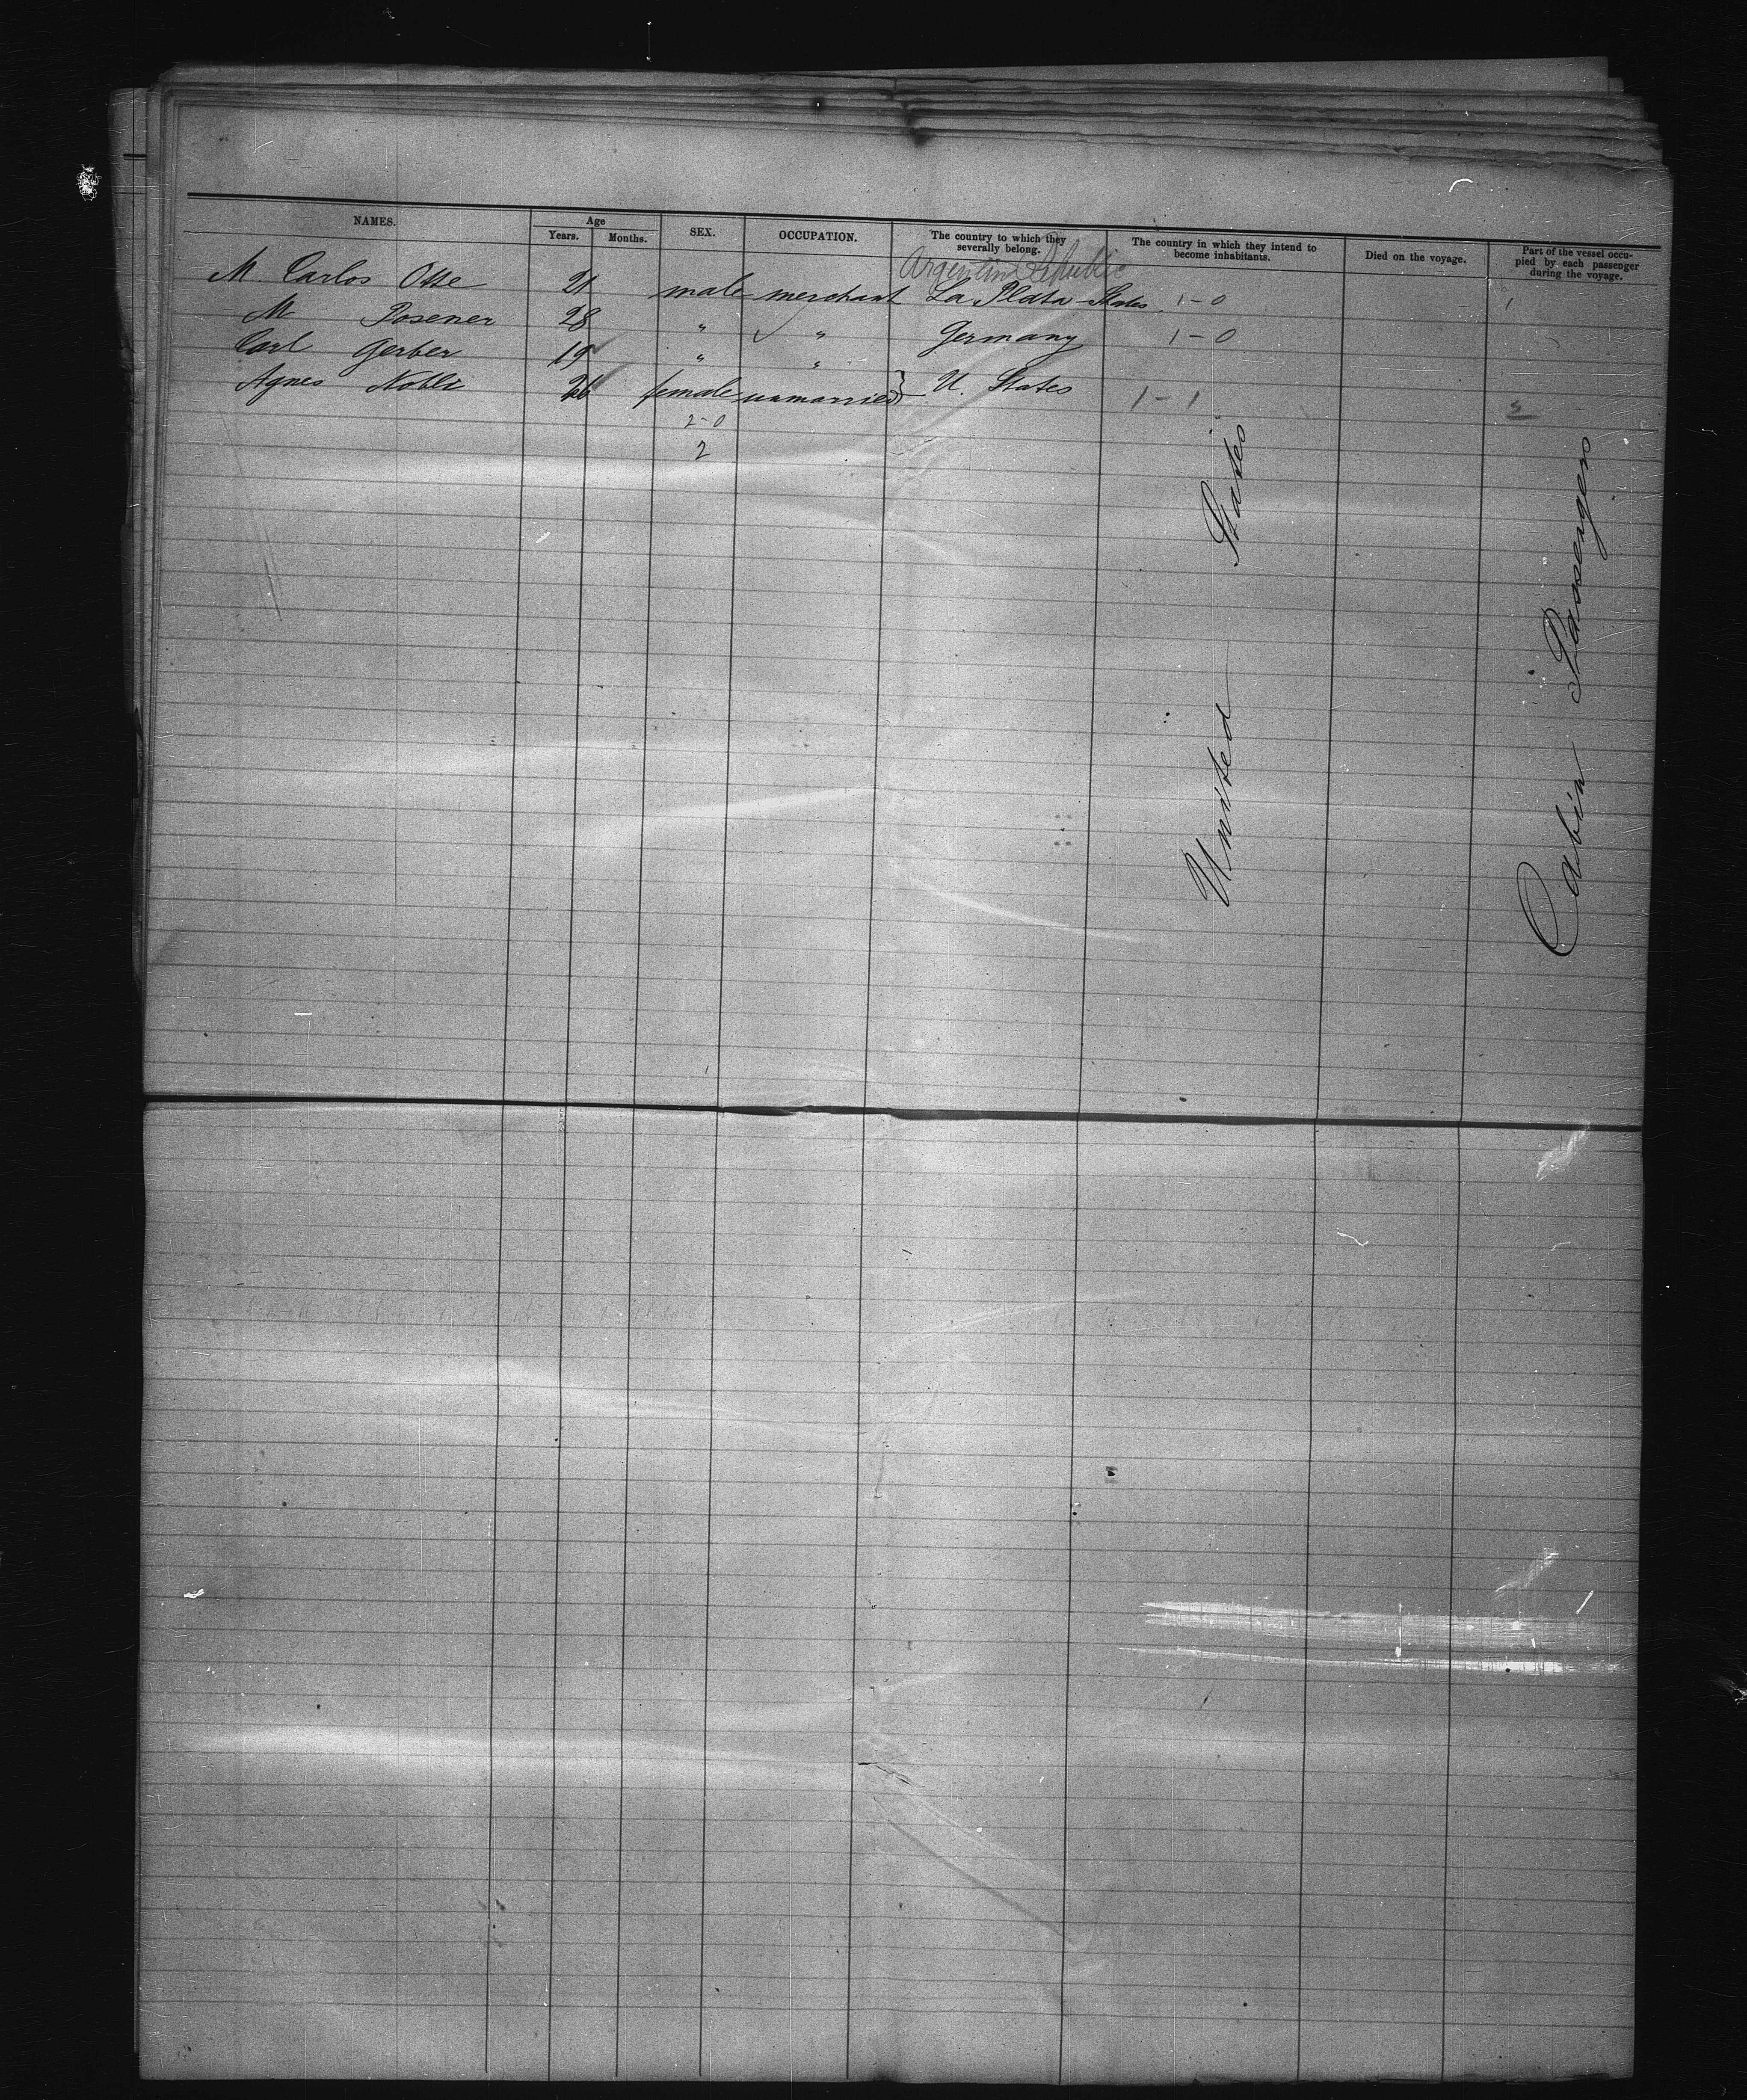 NAMES. Age SEX. OCCUPATION. The country to which they severally belong. The country in which they intend to become inhabitants. Died on the voyage. Part of the vessel occupied by each passenger during the voyage.
Years. Months.
Argentine Republic
M. Carlos Otte 21 male merchant La Plata States 1-0 1
M Posener 28 " " Germany 1-0
Carl Gerber 19 " "
Agnes 26 female unmarried } U. States 1-1
2-0
2
United States
Cabin Passengers